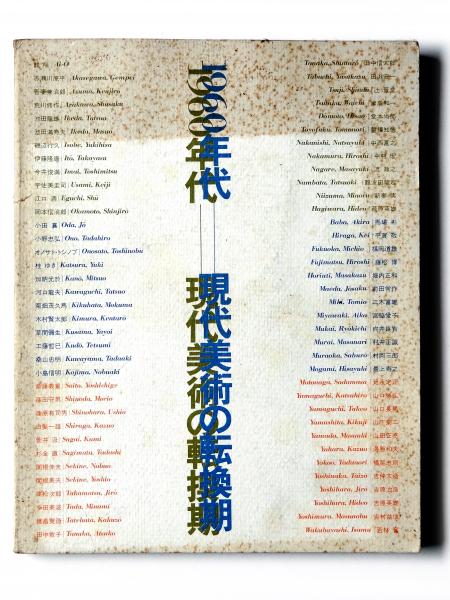 靉嘔 | Ay-O
赤瀬川原平 | Akasegawa, Gempei
吾妻兼治郎 | Azuma, Kenjiro
荒川修作 | Arakawa, Shusaku
池田龍雄 | Ikeda, Tatsuo
池田満寿夫 | Ikeda, Masuo
磯辺行久 | Isobe, Yukihisa
伊藤隆道 | Ito, Takayasu
今井俊満 | Imai, Toshimitsu
宇佐美圭司 | Usami, Keiji
江口 週 | Eguchi, Shū
岡本信治郎 | Okamoto, Shinjiro
小田 襄 | Oda, Jō
小野忠弘 | Ono, Tadahiro
オノサト・トシノブ | Onosato, Toshinobu
桂 ゆき | Katsura, Yuki
加納光於 | Kanō, Mitsuo
河口龍夫 | Kawaguchi, Tatsuo
菊畑茂久馬 | Kikuhata, Mokuma
木村賢太郎 | Kimura, Kentaro
草間彌生 | Kusama, Yayoi
工藤哲巳 | Kudo, Tetsumi
桑山忠明 | Kuwayama, Tadaaki
小島信明 | Kojima, Nobuaki
斎藤義重 | Saito, Yoshishige
篠田守男 | Shinoda, Morio
篠原有司男 | Shinohara, Ushio
白髪一雄 | Shiraga, Kazuo
菅井 汲 | Sugai, Kumi
杉全 直 | Sugimata, Tadashi
関根伸夫 | Sekine, Nobuo
関根美夫 | Sekine, Yoshio
高松次郎 | Takamatsu, Jirō
多田美波 | Tada, Minami
建畠覚造 | Tatehata, Kakuzo
田中敦子 | Tanaka, Atsuko
1960年代——現代美術の転換期
1960年代——現代美術の転換期
Tanaka, Shintarō | 田中信太郎
Tabuchi, Yasukazu | 田淵安一
Tsuji, Shindō | 辻 晋堂
Tsutaka, Waichi | 津高和一
Domoto, Hisao | 堂本尚郎
Toyofuku, Tomonori | 豊福知徳
Nakanishi, Natsuyuki | 中西夏之
Nakamura, Hiroshi | 中村 宏
Nagare, Masayuki | 流 政之
Nambata, Tatsuoki | 難波田龍起
Niizuma, Minoru | 新妻 実
Hagiwara, Hideo | 萩原英雄
Baba, Akira | 馬場 彬
Hiraga, Kei | 平賀 敬
Fukuoka, Michio | 福岡道雄
Fujimatsu, Hiroshi | 藤松 博
Horiuti, Masakazu | 堀内正和
Maeda, Jōsaku | 前田常作
Miki, Tomio | 三木富雄
Miyawaki, Aiko | 宮脇愛子
Mukai, Ryokichi | 向井良吉
Murai, Masanari | 村井正誠
Muraoka, Saburo | 村岡三郎
Mogami, Hisayuki | 最上寿之
Motonaga, Sadamasa | 元永定正
Yamaguchi, Katsuhiro | 山口勝弘
Yamaguchi, Takeo | 山口長男
Yamashita, Kikuji | 山下菊二
Yamada, Masaaki | 山田正亮
Yuhara, Kazuo | 湯原和夫
Yokoo, Tadanori | 横尾忠則
Yoshinaka, Taizo | 吉仲太造
Yoshihara, Jiro | 吉原治良
Yoshihara, Hideo | 吉原英雄
Yoshimura, Masunobu | 吉村益信
Wakabayashi, Isamu | 若林 奮